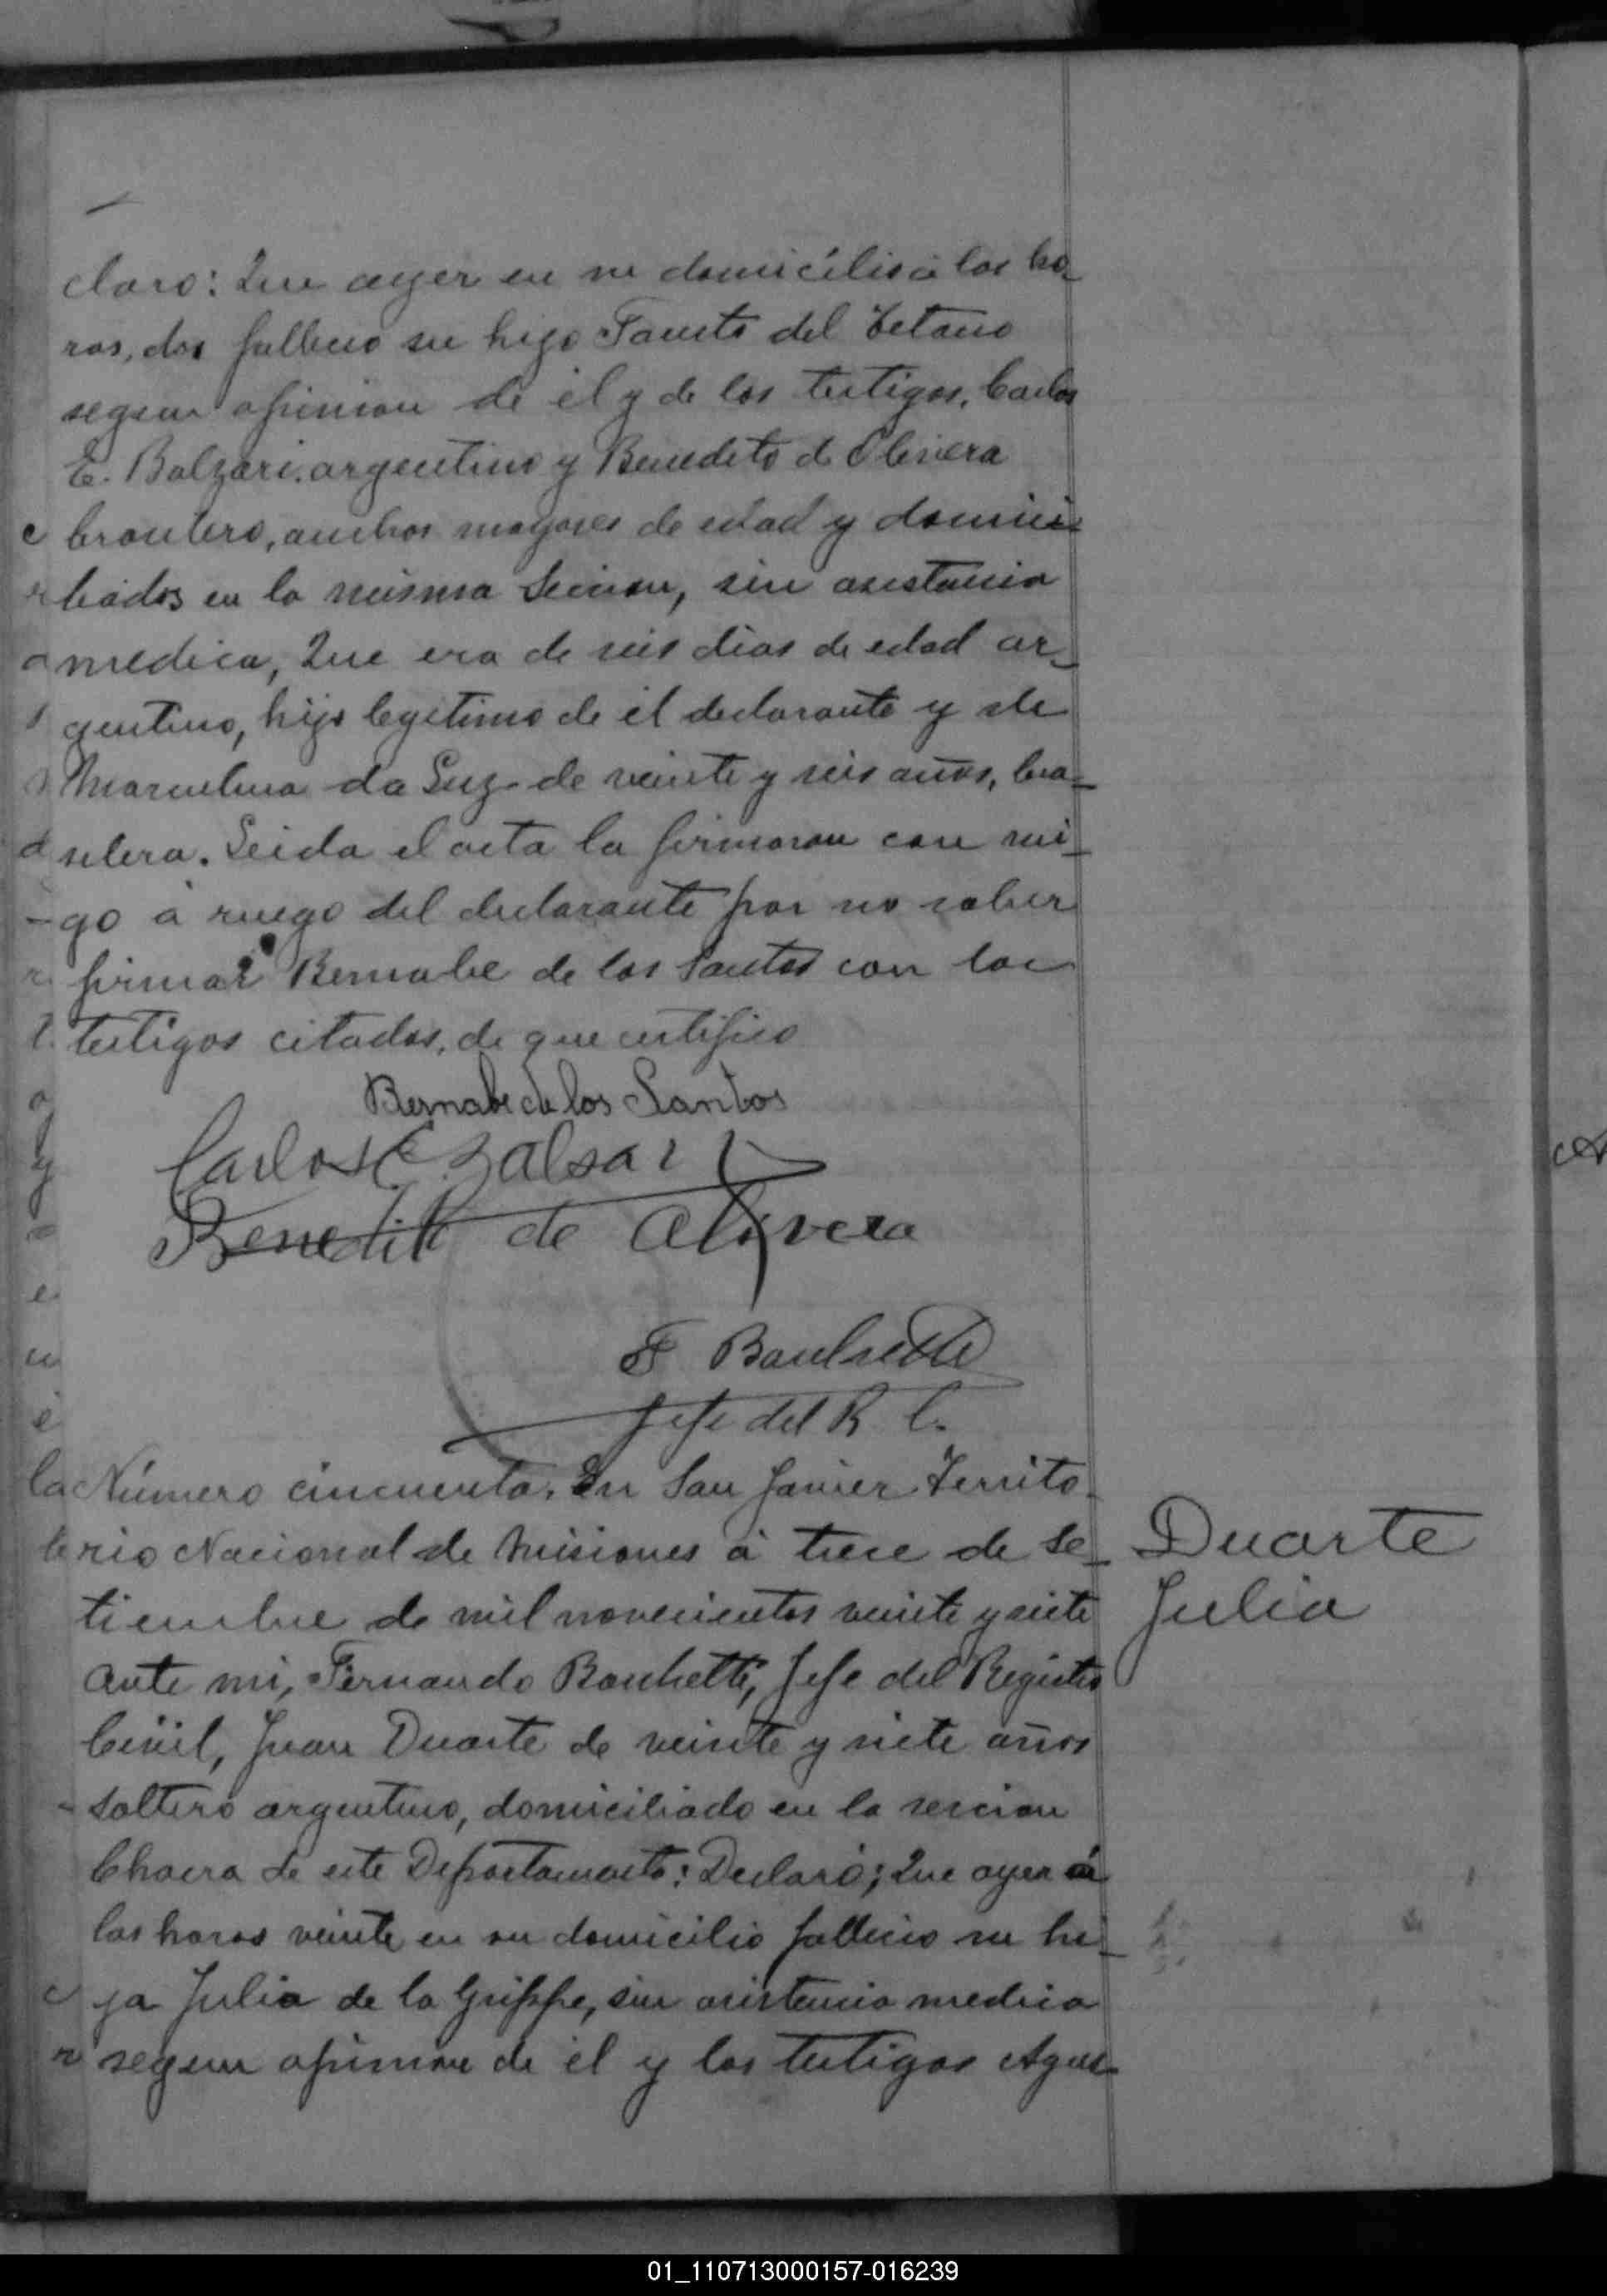 claro: Que ayer en su domicilio á las ho-
ras, dos fallecio su hijo Fausto del Tetano
segun opinion de él y de los testigos, Carlos
E. Balzari, argentino y Benedito de Olivera
ambos mayores de edad y domici-
liados en la misma Seccion, sin asistencia
medica, Que era de seis dias de edad ar-
gentino, hijo legitimo de él declarante y de
Marcelina da Luz de veinte y seis años, bra-
silera. Leida el acta la firmaron con mi-
go á ruego del declarante por no saber
firmar Bernabe de los Santos con los
testigos citados, de que certifico
Bernabe de los Santos
Carlos E Balsari
Benedito de Olivera
F Banchetti
Jefe del R. C.
Número cincuenta. En San Javier Territo-
rio Nacional de Misiones á trece de Se-
tiembre de mil novecientos veinte y siete
ante mi, Fernando Banchetti, Jefe del Registro
Civil, Juan Duarte de veinte y siete años
soltero argentino, domiciliado en la seccion
Chacra de este Departamento: Declaró; Que ayer á
las horas veinte en su domicilio fallecio su hi-
ja Julia de la Grippe, sin asistencia medica
segun opinion de él y los testigos Agus-
Duarte
Julia
01_110713000157-016239